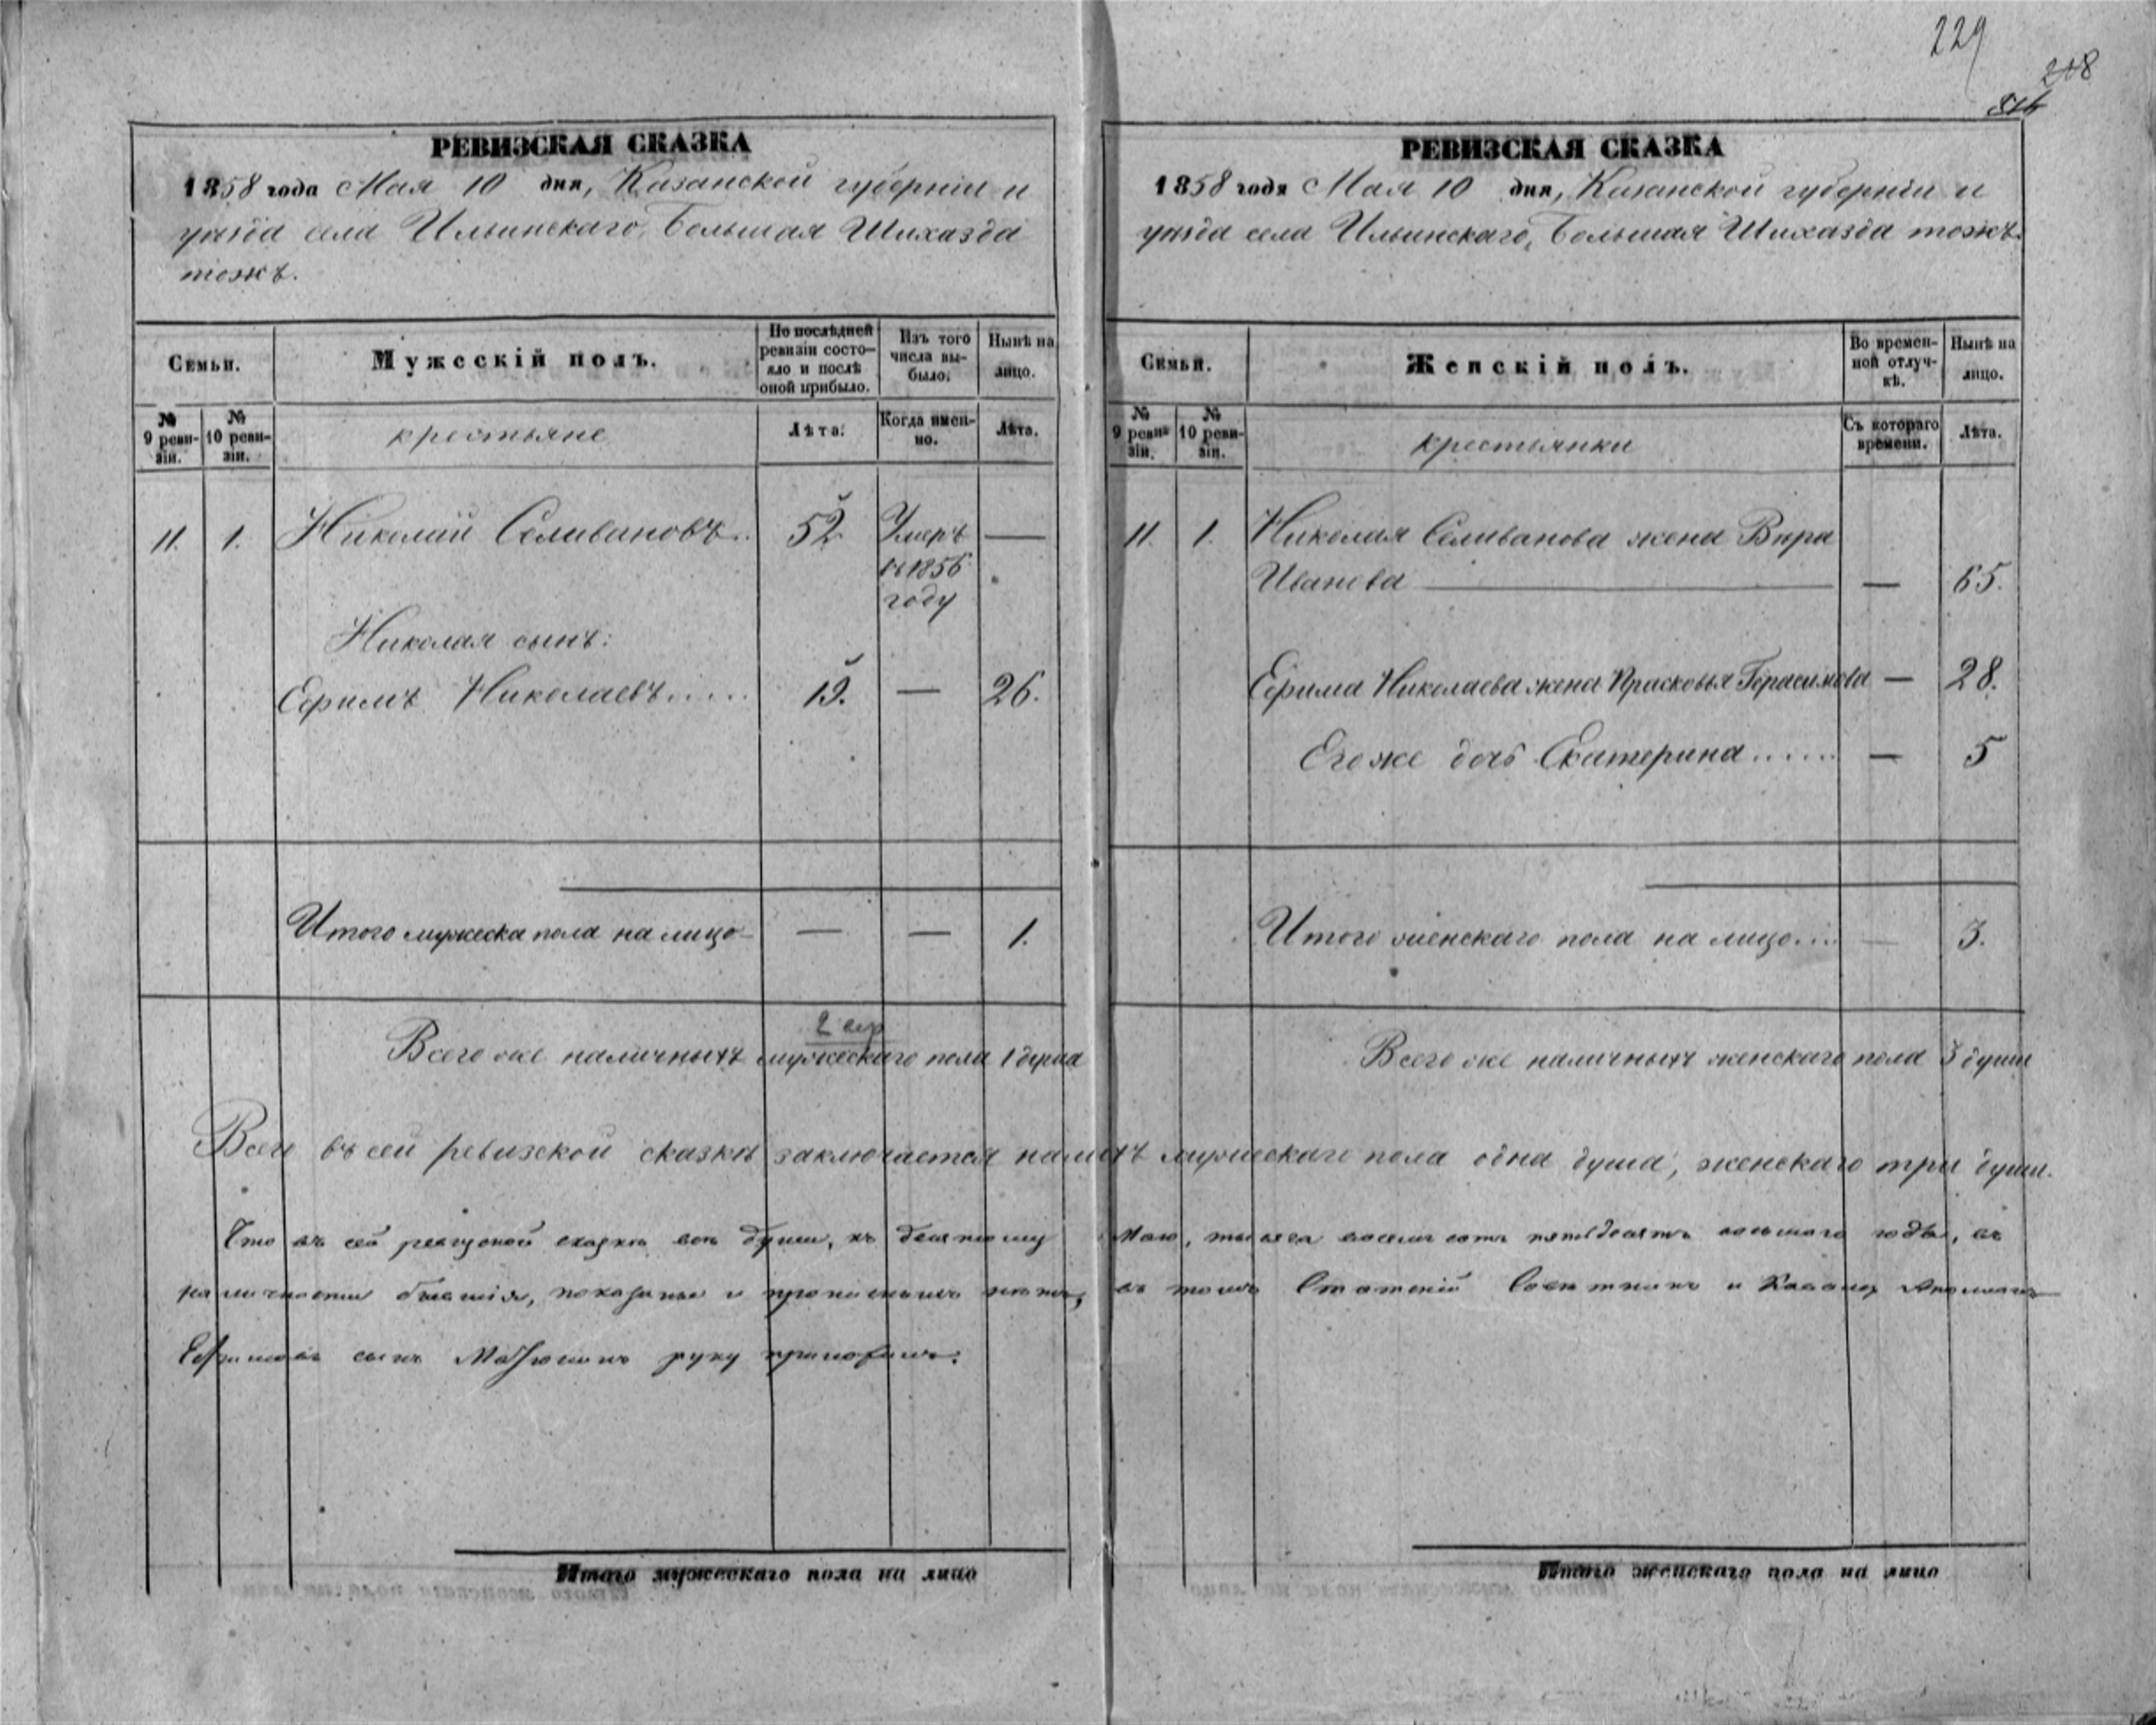 229
208
РЕВИЗСКАЯ СКАЗКА
1858 года Мая 10 дня, Казанской губерніи и
уѣзда села Ильинскаго, Большая Шихазда
тожъ.
Семьи.
Мужескій полъ.
По послѣдней ревизіи состояло и послѣ оной прибыло.
Изъ того числа выбыло.
Нынѣ на лицо.
№ 9 ревизіи.
№ 10 ревизіи.
крестьяне
Лѣта.
Когда именно.
Лѣта.
11. 1. Николай Селивановъ.. 52 Умеръ —
въ 1856
году
Николая сынъ:
Ефимъ Николаевъ..... 19. — 26.
Итого мужеска пола на лицо — — 1.
Всего же наличныхъ мужескаго пола 1 душа
РЕВИЗСКАЯ СКАЗКА
1858 года Мая 10 дня, Казанской губерніи и
уѣзда села Ильинскаго, Большая Шихазда тожъ.
Семьи.
Женскій полъ.
Во временной отлучкѣ.
Нынѣ на лицо.
№ 9 ревизіи.
№ 10 ревизіи.
крестьянки
Съ котораго времени.
Лѣта.
11. 1. Николая Селиванова жена Вѣра
Иванова — 65.
Ефима Николаева жена Прасковья Герасимова — 28.
Его же дочь Екатерина...... — 5
Итого женскаго пола на лицо.... — 3.
Всего же наличныхъ женскаго пола 3 души
Всего въ сей ревизской сказкѣ заключается наличныхъ мужескаго пола одна душа, женскаго три души.
Что въ сей ревизской сказкѣ всѣ души, къ десятому Маю, тысяча восемь сотъ пятьдесятъ восьмаго года, въ
наличности бывшія, показаны и прописныхъ нѣтъ, въ томъ Статскій Совѣтникъ и Кавалеръ
Ефимовъ сынъ руку приложилъ.
Итого мужескаго пола на лицо
Итого женскаго пола на лицо